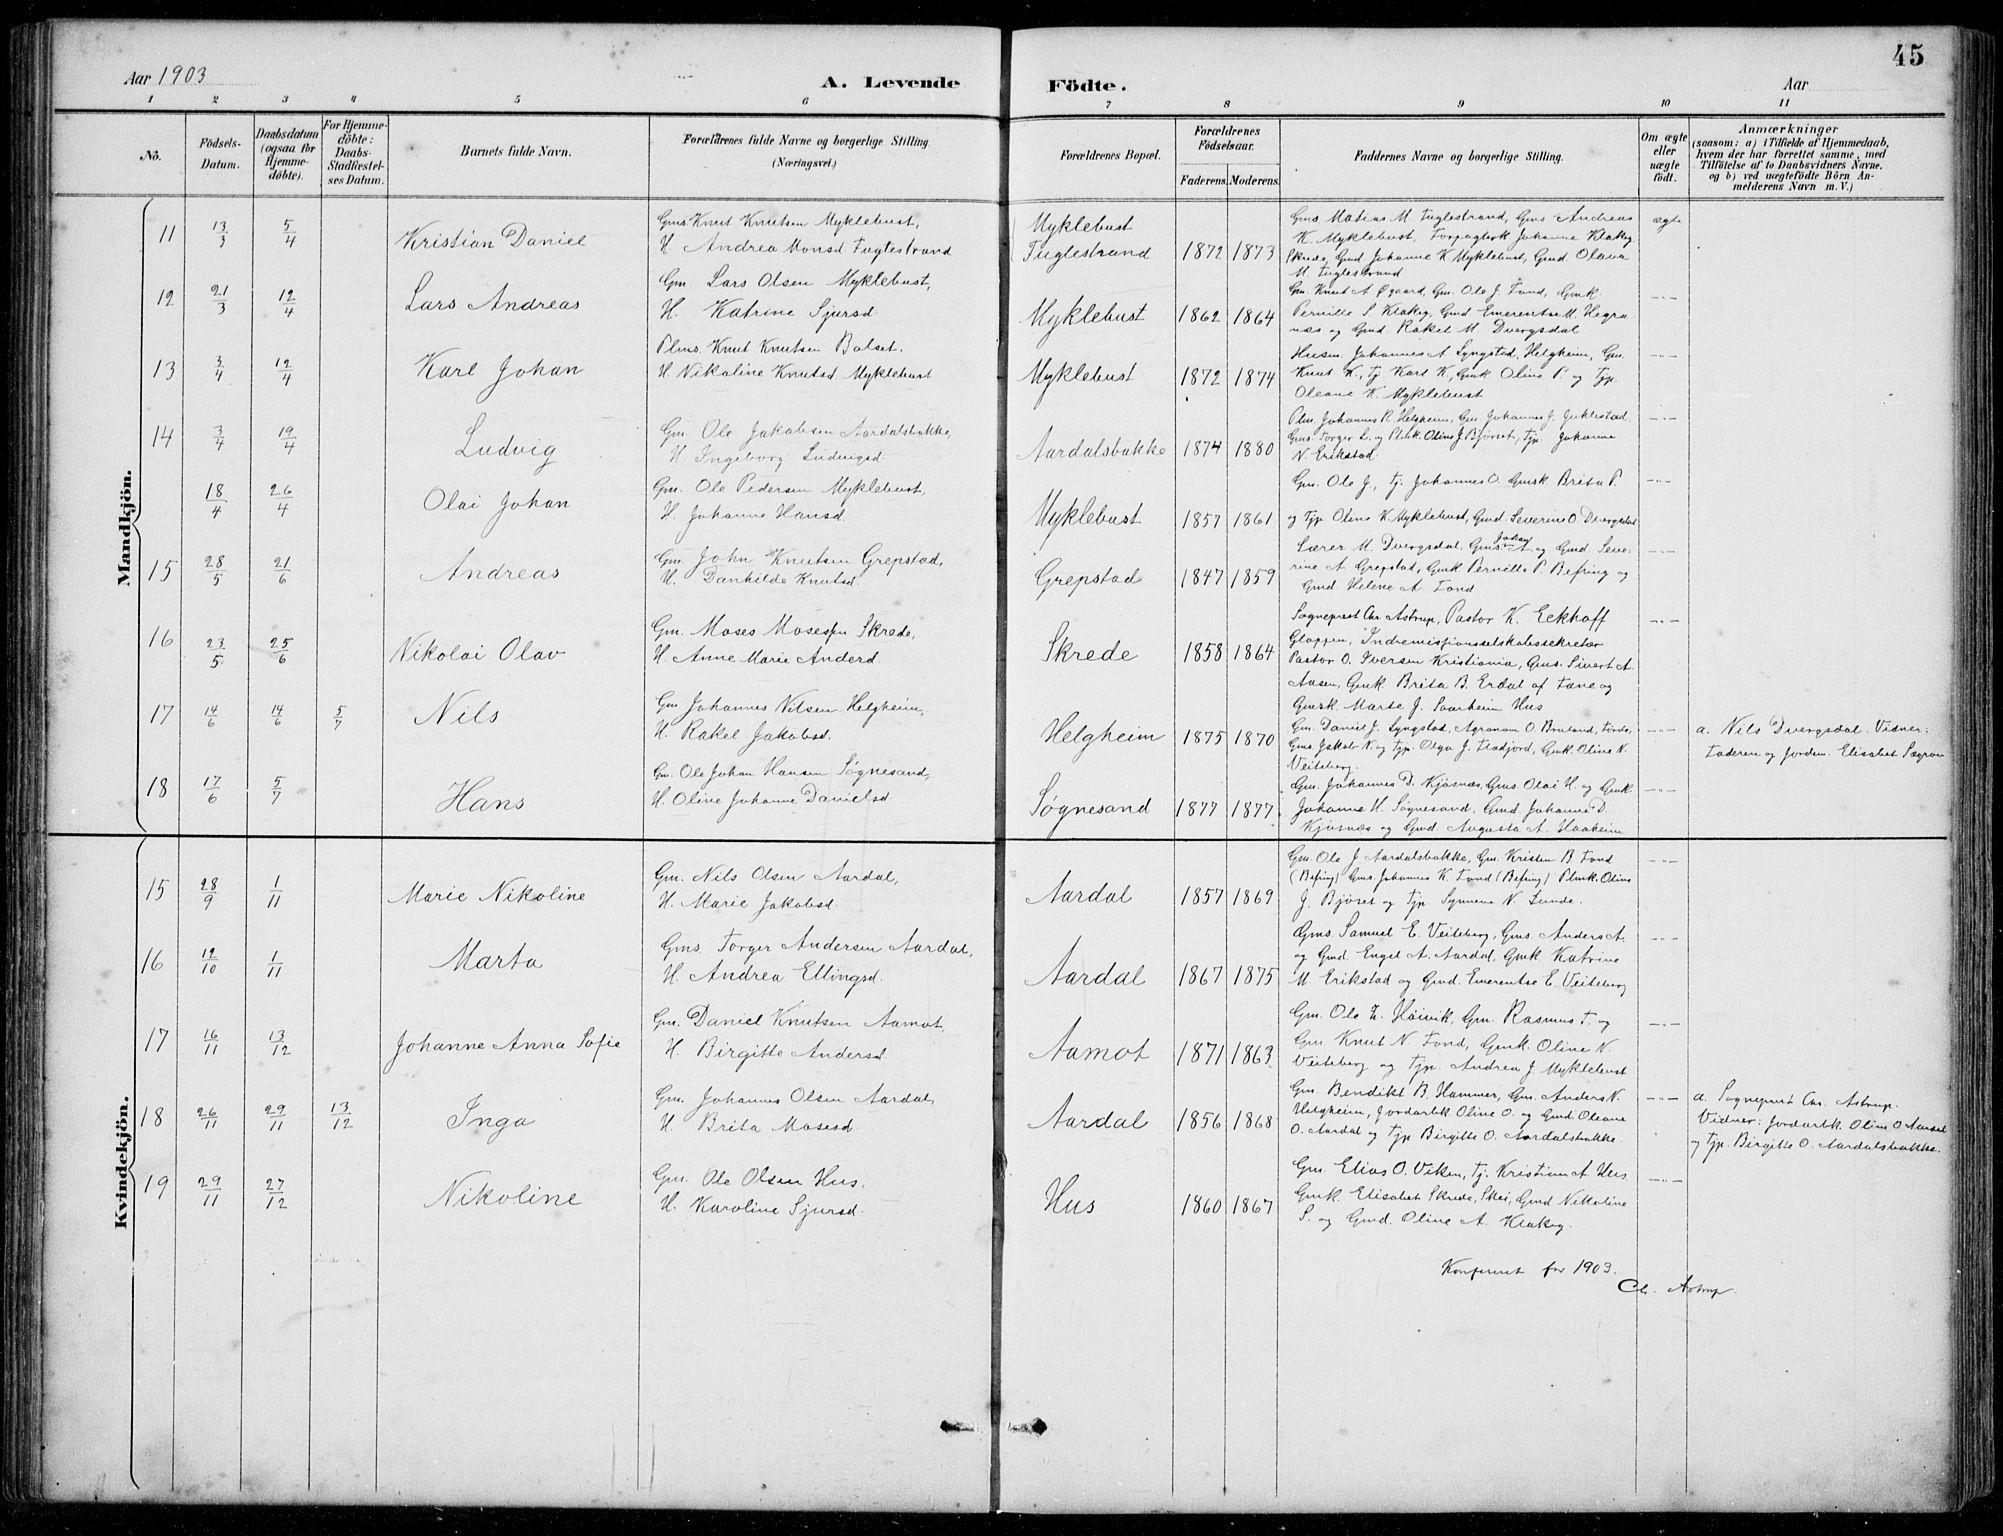 45
Aar 1903
A. Levende Födte.
Aar
1 2 3 4 5 6 7 8 9 10 11
No.
Födsels-Datum.
Daabsdatum (ogsaa for Hjemme-döbte).
For Hjemme-döbte: Daabs-Stadfestelses Datum.
Barnets fulde Navn.
Forældrenes fulde Navne og borgerlige Stilling (Næringsvei.)
Forældrenes Bopæl.
Forældrenes Födselsaar.
Faderens. Moderens.
Faddernes Navne og borgerlige Stilling.
Om ægte eller uægte födt.
Anmærkninger
(saasom: a) i Tilfælde af Hjemmedaab, hvem der har forrettet samme, med Tilföielse af to Daabsvidners Navne, og b) ved uægtefödte Börn Anmelderens Navn m. V.)
Mandkjön.
11 13/3 5/4 Kristian Daniel
Gms. Knut Knutsen Myklebust,
H. Andrea Monsd Fuglestrand
Myklebust
Fuglestrand 1872 1873
Gms Matias M Fuglestrand, Gms Andreas ægte
K. Myklebust, Johanne Klakeg
Skrede, Gmd Johanne K Myklebust, Gmd Olava
M. Fuglestrand
12 21/3 12/4 Lars Andreas
Gm. Lars Olsen Myklebust,
H. Katrine Sjursd
Myklebust 1862 1864
Gm. Knut A Øgaard, Gm. Ole J. Fond, Gmk
Pernille S. Klakeg, Gmd Emerentse M. Hegranæs og Gmd. Rakel M. Dvergsdal
13 3/4 12/4 Karl Johan
Plms. Knut Knutsen Bolset,
H. Nikoline Knutsd Myklebust
Myklebust 1872 1874
Husm. Johannes A Lyngstad, Helgheim, Gm.
Knut K., Tj. Karl K., Gmk Oline P. og Tjp.
Oleane K. Myklebust
14 3/4 19/4 Ludvig
Gm. Ole Jakobsen Aardalsbakke,
H. Ingeborg Ludvigsd.
Aardalsbakke 1874 1880
Plm. Johannes R. Helgheim, Gm. Johannes J.
Gms. Torger L. og Plmk. Oline J Bjørset, Tjp. Johanne
N. Erikstad
18/4 26/4 Olai Johan
Gm. Ole Pedersen Myklebust,
H. Johanne Hansd
Myklebust 1857 1861
Gm. Ole J., Tj. Johannes O. Gmsk Brita P.
og Tjp. Oline K. Myklebust, Gmd Severine O. Dvergsdal
15 28/5 21/6 Andreas
Gm. John Knutsen Grepstad,
H. Danhilde Knutsd.
Grepstad 1847 1859
Lærer M. Dvergsdal, Gms Johan A. og Gmd Severine A Grepstad, Gmk Pernille P. Befring og
Gmd. Helene A Fond
16 23/5 25/6 Nikolai Olav
Gm. Moses Mosessen Skrede,
H. Anne Marie Andersd
Skrede 1858 1864
Sogneprest Chr. Astrup, Pastor K. Eckhoff
Gloppen, Indremissionsselskabssekretær
Pastor O. Iversen Kristiania, Gms. Sivert A.
Aasen, Gmk. Brita B. Erdal af Tane og
Gmsk Marte J. Saarheim Hus
17 14/6 14/6 5/7 Nils
Gm Johannes Nilsen Helgheim,
H. Rakel Jakobsd.
Helgheim 1875 1870
Gm. Daniel J. Lyngstad, Agronom O. Bruland, Førde,
Gms. Jakob N. og Tjp. Olga J. Fladjord, Gmk. Oline N.
Veiteberg.
a. Nils Dvergsdal. Vidner:
Faderen og Jordm. Elisabet
18 17/6 5/7 Hans
Gm. Ole Johan Hansen Søgnesand,
H. Oline Johanne Danielsd
Søgnesand 1877 1877
Gm. Johannes D. Kjøsnæs, Gms. Olai H. og Gmk
Johanne H. Søgnesand, Gmd Johanne D.
Kjøsnæs og Gmd. Augusta A. Haaheim
Kvindekjön.
15 28/9 1/11 Marie Nikoline
Gm. Nils Olsen Aardal,
H. Marie Jakobsd.
Aardal 1857 1869
Gm. Ole J. Aardalsbakke, Gm. Kristen B. Fond
(Befring) Gms. Johannes K. Fond (Befring) Plmk. Oline
J. Bjøset og Tjp. Synneve N. Lunde.
16 12/10 1/11 Marta
Gms Torger Andersen Aardal,
H. Andrea Ellingsd.
Aardal 1867 1875
Gms. Samuel E. Veiteberg, Gms. Anders A.
og Gmd. Engel A. Aardal, Gmk Katrine
M Erikstad og Gmd. Emerentse E. Veiteberg
17 16/11 13/12 Johanne Anna Sofie
Gm. Daniel Knutsen Aamot,
H. Birgitte Andersd.
Aamot 1871 1863
Gm. Ole Z. Høivik, Gm. Rasmus T. og
Gm. Knut N. Fond, Gmk. Oline N.
Veiteberg og Tjp. Andrea J Myklebust
18 26/11 29/11 13/12 Inga
Gm. Johannes Olsen Aardal,
H. Brita Mosesd.
Aardal 1856 1868
Gm. Bendikt B. Hammer, Gm. Anders N.
Helgheim, Jordarbk Oline O. og Gmd Oleane
O. Aardal og Tjp Birgitte O. Aardalsbakke.
a. Sogneprest Chr. Astrup.
Vidner: Jordarbk. Oline O Aardal
og Tjp. Birgitte O. Aardalsbakke.
19 29/11 27/12 Nikoline
Gm. Ole Olsen Hus,
H. Karoline Sjursd.
Hus 1860 1867
Gm. Elias O. Viken, Tj. Kristian A Hus
Gmk. Elisabet Skrede, Skei, Gmd Nikoline
S. og Gmd. Oline A. Klakeg.
Konfereret for 1903.
Ch. Astrup